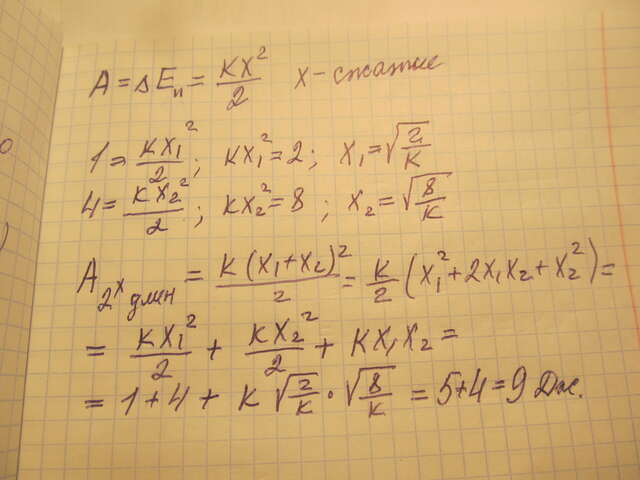 A = ΔEп = kx²/2   x - сжатие
1 = kx₁²/2 ; kx₁² = 2 ; x₁ = √(2/k)
4 = kx₂²/2 ; kx₂² = 8 ; x₂ = √(8/k)
A₂ₓ длин = k(x₁+x₂)²/2 = k/2 (x₁² + 2x₁x₂ + x₂²) =
= kx₁²/2 + kx₂²/2 + kx₁x₂ =
= 1 + 4 + k √(2/k) · √(8/k) = 5+4 = 9 Дж.